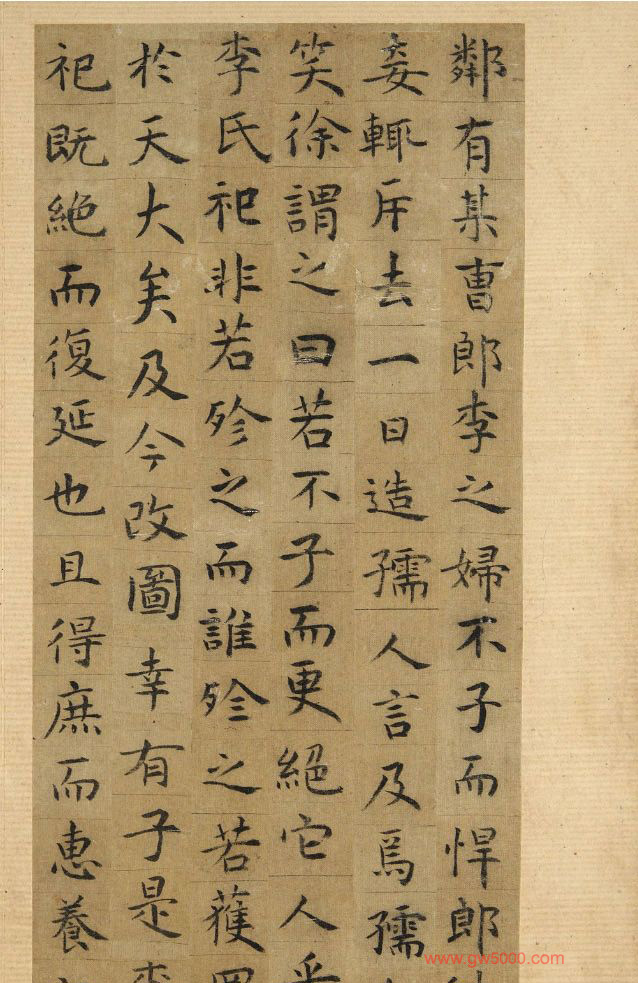 鄰有某曹郎李之婦不子而悍郎
妾輒斥去一日造孺人言及焉孺
笑徐謂之曰若不子而更絕它人
李氏祀非若殄之而誰殄之若獲
於天大矣及今改圖幸有子是
祀既絕而復延也且得庶而惠養
www.gw5000.com